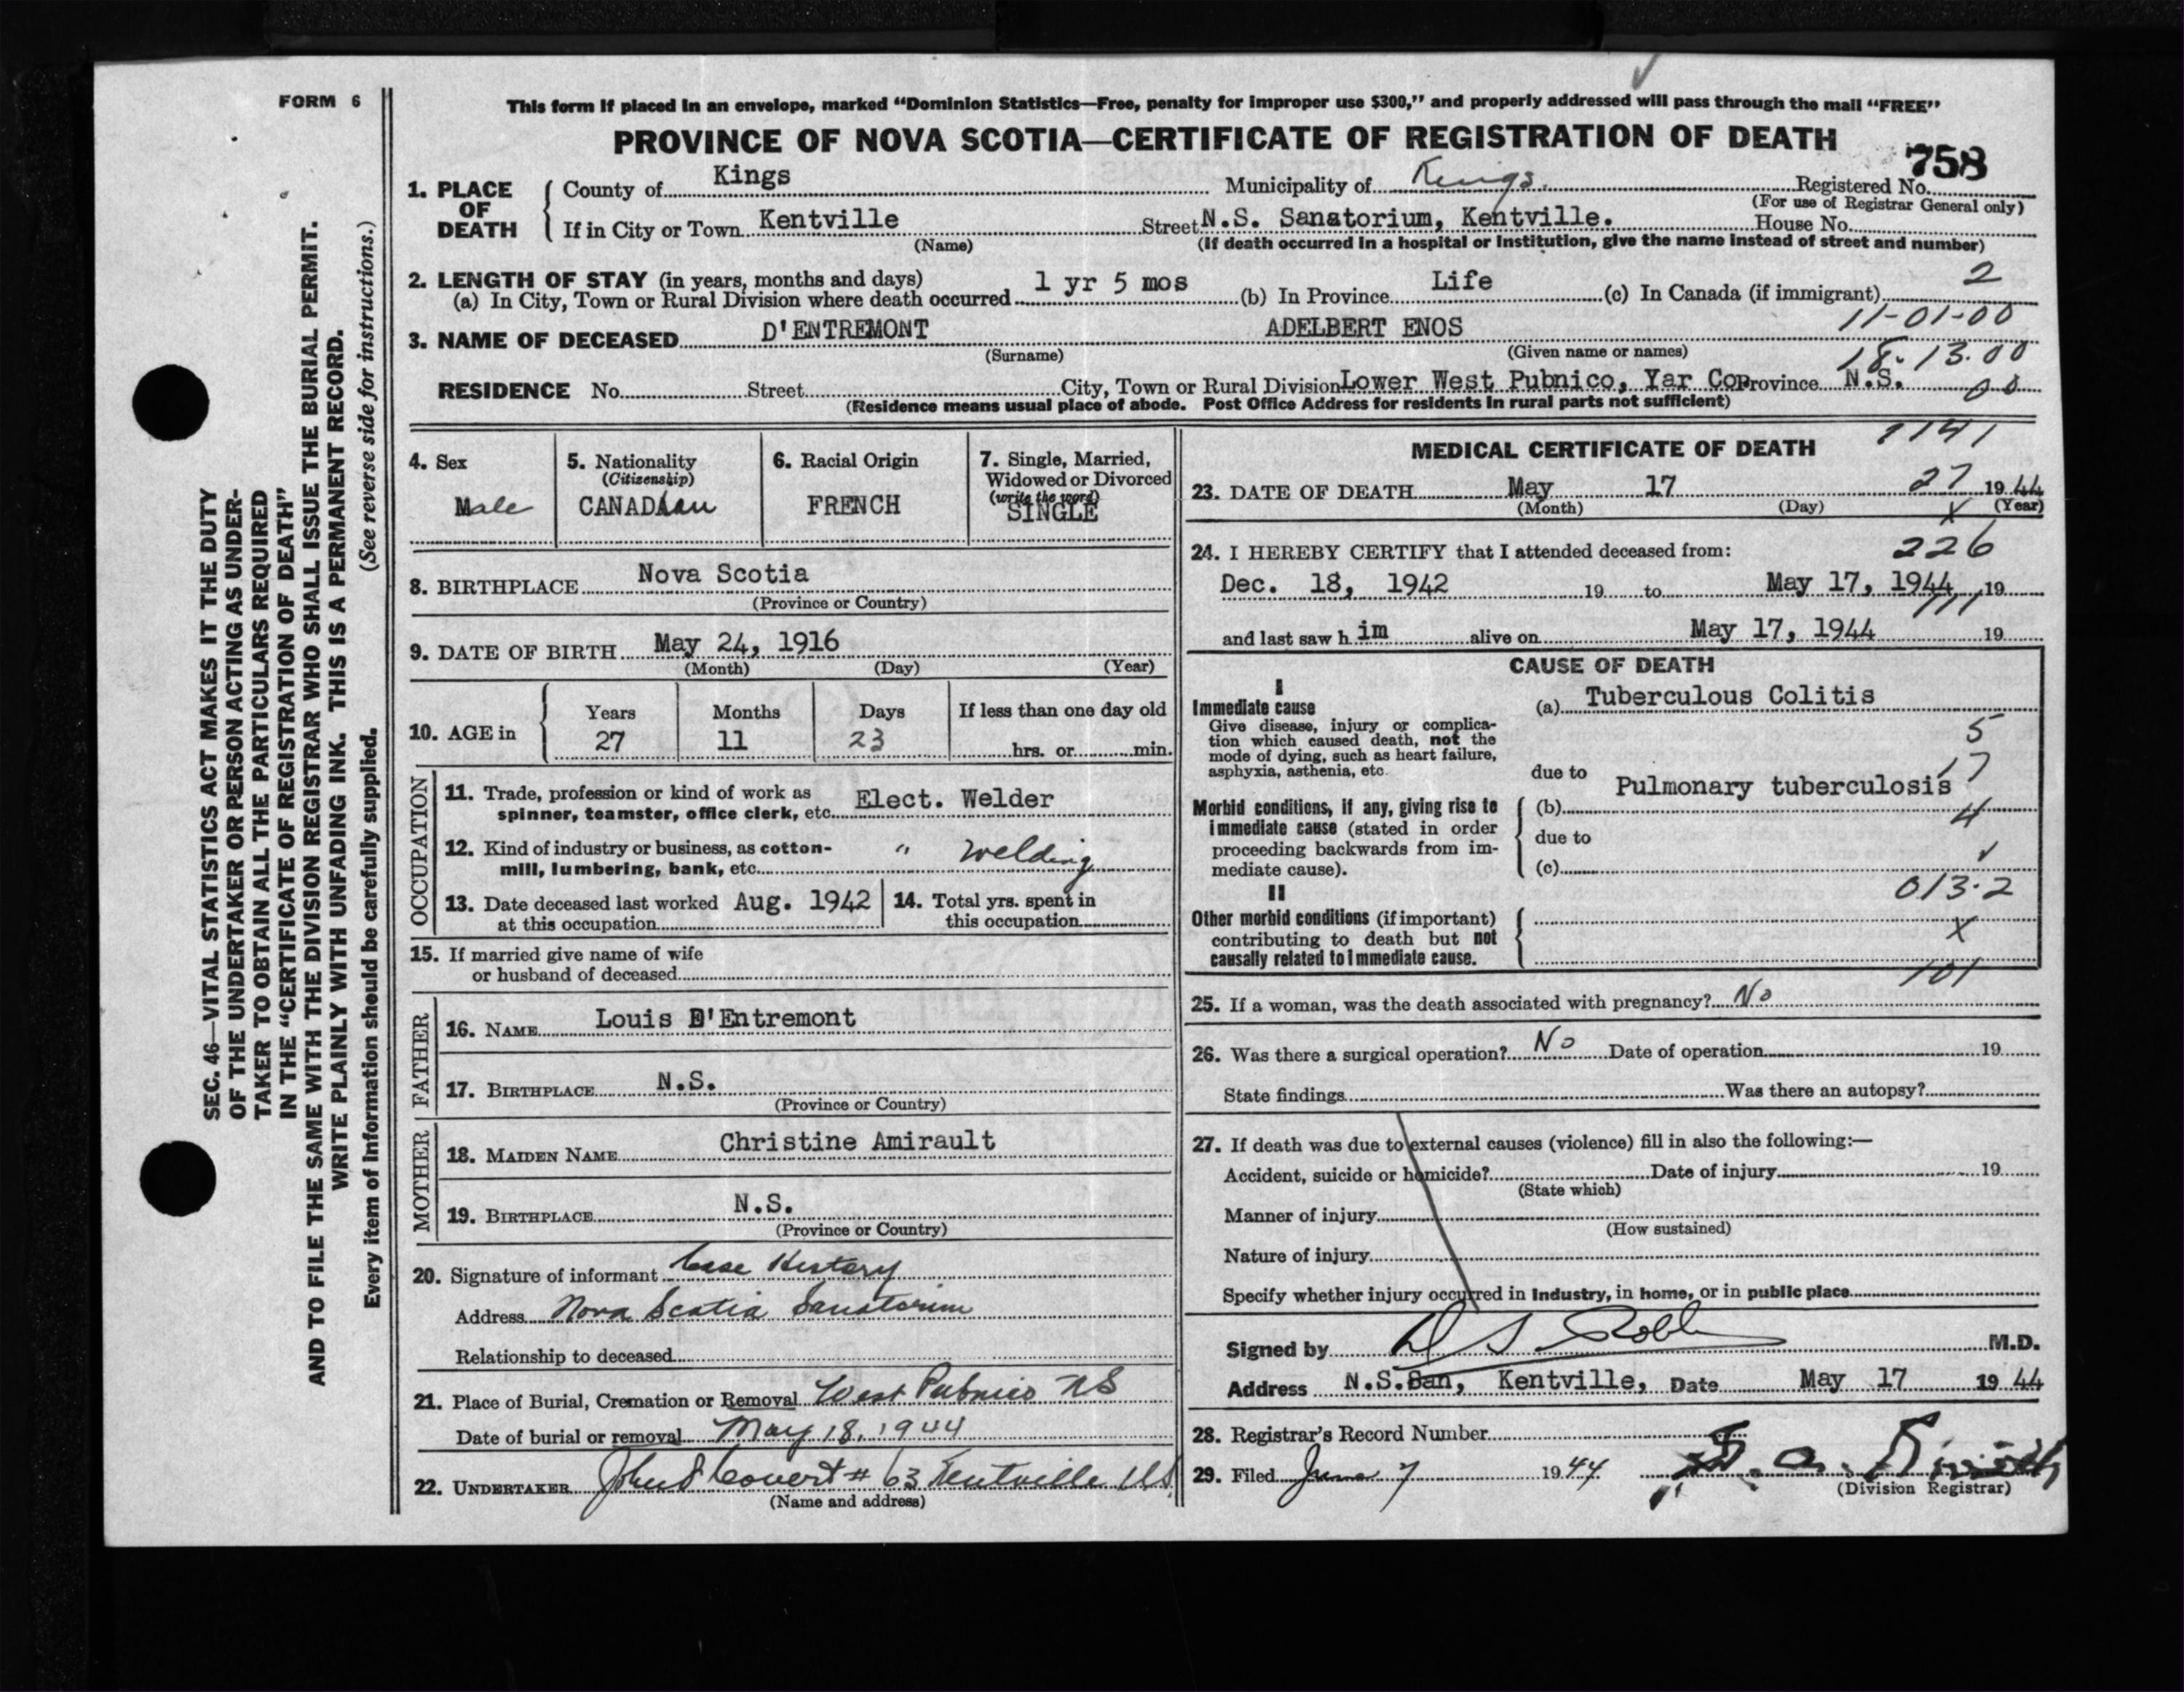 FORM 6
This form if placed in an envelope, marked “Dominion Statistics—Free, penalty for improper use $300,” and properly addressed will pass through the mail “FREE”
PROVINCE OF NOVA SCOTIA—CERTIFICATE OF REGISTRATION OF DEATH
758
1. PLACE OF DEATH County of Kings Municipality of Kings Registered No.
(For use of Registrar General only)
If in City or Town Kentville Street N.S. Sanatorium, Kentville. House No.
(Name) (If death occurred in a hospital or institution, give the name instead of street and number)
2. LENGTH OF STAY (in years, months and days)
(a) In City, Town or Rural Division where death occurred 1 yr 5 mos (b) In Province Life (c) In Canada (if immigrant) 2
11-01-00
3. NAME OF DECEASED D'ENTREMONT ADELBERT ENOS
(Surname) (Given name or names) 18-13.00
RESIDENCE No. Street City, Town or Rural Division Lower West Pubnico, Yar Co Province N.S. 00
(Residence means usual place of abode. Post Office Address for residents in rural parts not sufficient)
4. Sex Male
5. Nationality (Citizenship) CANADian
6. Racial Origin FRENCH
7. Single, Married, Widowed or Divorced (write the word) SINGLE
8. BIRTHPLACE Nova Scotia
(Province or Country)
9. DATE OF BIRTH May 24, 1916
(Month) (Day) (Year)
10. AGE in Years 27 Months 11 Days 23 If less than one day old hrs. or min.
OCCUPATION
11. Trade, profession or kind of work as spinner, teamster, office clerk, etc. Elect. Welder
12. Kind of industry or business, as cotton-mill, lumbering, bank, etc. " Welding
13. Date deceased last worked at this occupation Aug. 1942
14. Total yrs. spent in this occupation
15. If married give name of wife or husband of deceased
FATHER
16. NAME Louis D'Entremont
17. BIRTHPLACE N.S.
(Province or Country)
MOTHER
18. MAIDEN NAME Christine Amirault
19. BIRTHPLACE N.S.
(Province or Country)
20. Signature of informant Case History
Address Nova Scotia Sanatorium
Relationship to deceased
21. Place of Burial, Cremation or Removal West Pubnico NS
Date of burial or removal May 18, 1944
22. UNDERTAKER John S Covert # 63 Kentville NS
(Name and address)
MEDICAL CERTIFICATE OF DEATH 1141
23. DATE OF DEATH May 17 27 1944
(Month) (Day) (Year)
X
24. I HEREBY CERTIFY that I attended deceased from: 226
Dec. 18, 1942 19 to May 17, 1944 19
111
and last saw h im alive on May 17, 1944 19
CAUSE OF DEATH
I
Immediate cause (a) Tuberculous Colitis
Give disease, injury or complication which caused death, not the mode of dying, such as heart failure, asphyxia, asthenia, etc.
5
17
due to
Morbid conditions, if any, giving rise to immediate cause (stated in order proceeding backwards from immediate cause).
(b) Pulmonary tuberculosis
4
due to
(c)
013.2
II
Other morbid conditions (if important) contributing to death but not causally related to immediate cause.
X
101
25. If a woman, was the death associated with pregnancy? No
26. Was there a surgical operation? No Date of operation 19
State findings Was there an autopsy?
27. If death was due to external causes (violence) fill in also the following:—
Accident, suicide or homicide? Date of injury 19
(State which)
Manner of injury
(How sustained)
Nature of injury
Specify whether injury occurred in industry, in home, or in public place
Signed by M.D.
Address N.S.San, Kentville, Date May 17 1944
28. Registrar's Record Number
29. Filed June 7 1944
(Division Registrar)
SEC. 46—VITAL STATISTICS ACT MAKES IT THE DUTY
OF THE UNDERTAKER OR PERSON ACTING AS UNDER-
TAKER TO OBTAIN ALL THE PARTICULARS REQUIRED
IN THE “CERTIFICATE OF REGISTRATION OF DEATH”
AND TO FILE THE SAME WITH THE DIVISION REGISTRAR WHO SHALL ISSUE THE BURIAL PERMIT.
WRITE PLAINLY WITH UNFADING INK. THIS IS A PERMANENT RECORD.
Every item of information should be carefully supplied. (See reverse side for instructions.)